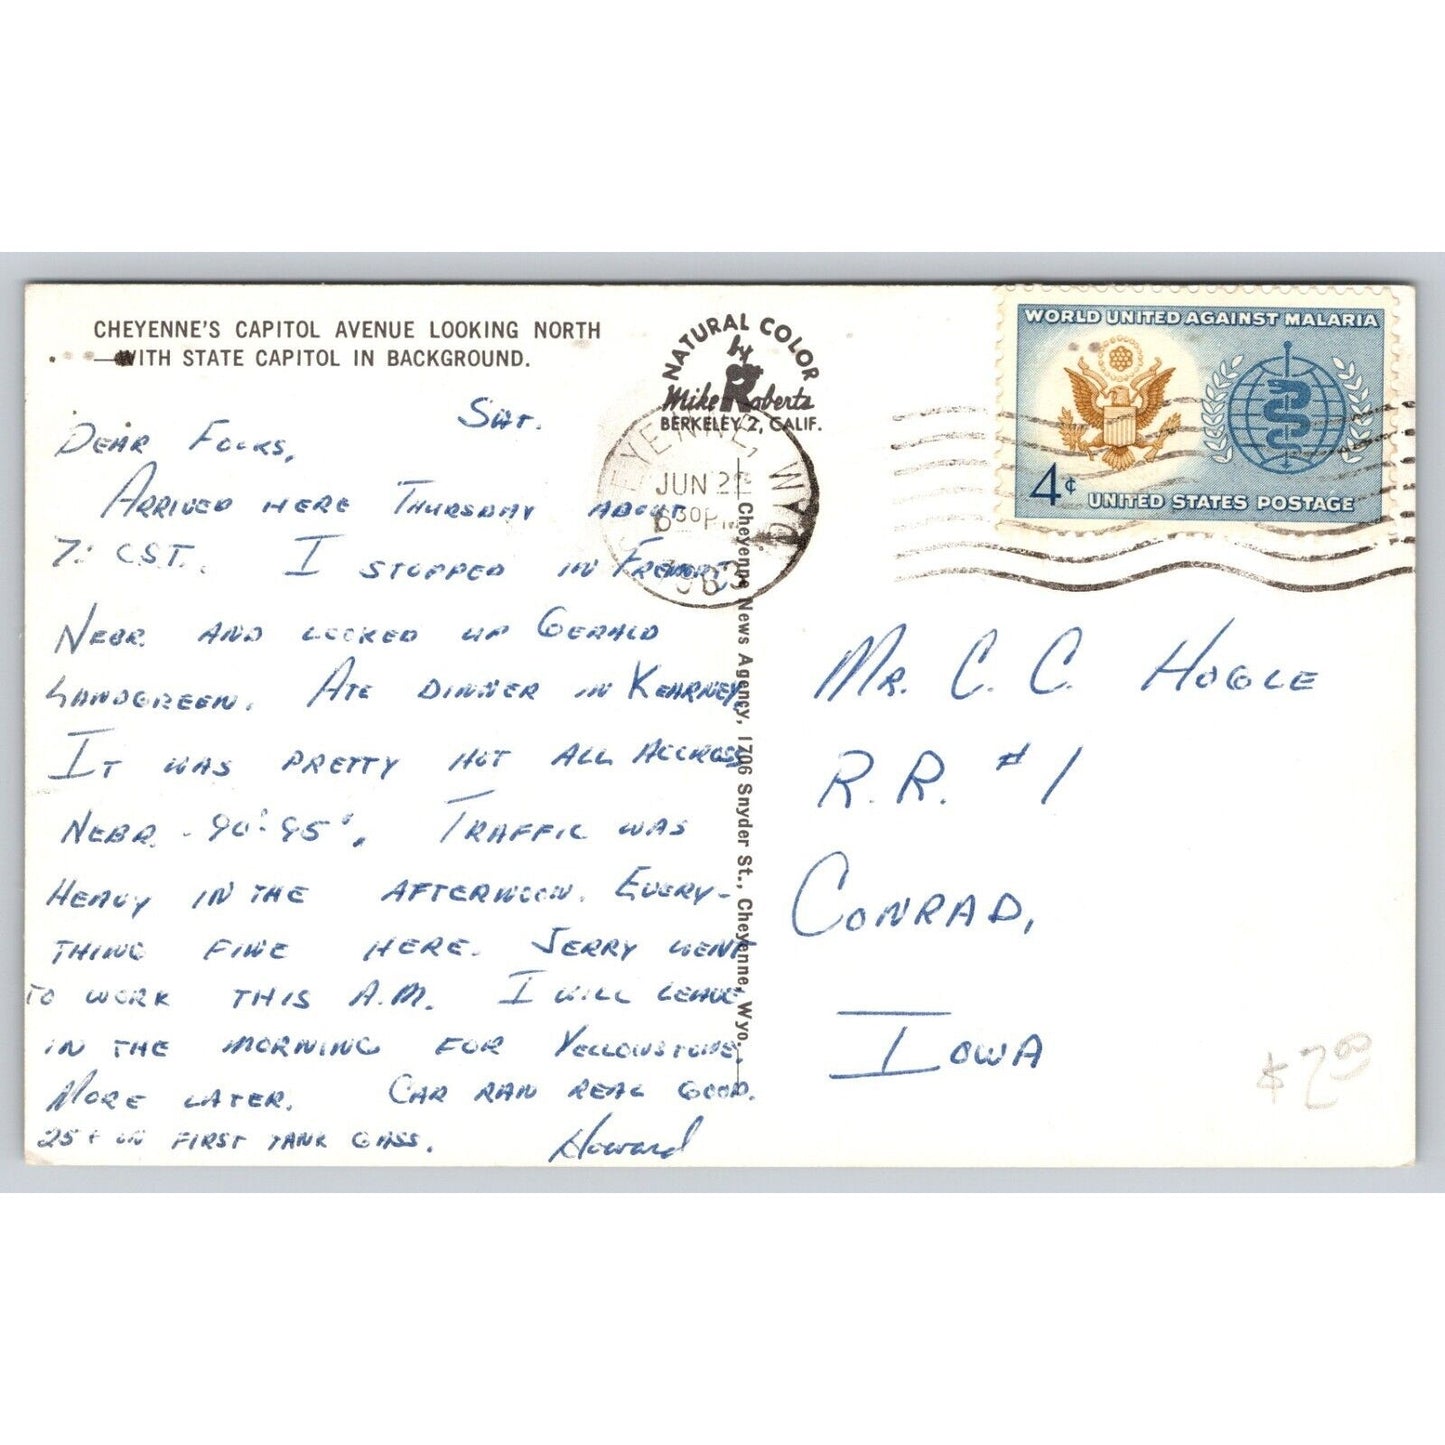 CHEYENNE'S CAPITOL AVENUE LOOKING NORTH
—WITH STATE CAPITOL IN BACKGROUND.
NATURAL COLOR
by
Mike Roberts
BERKELEY 2, CALIF.
WORLD UNITED AGAINST MALARIA
4¢ UNITED STATES POSTAGE
CHEYENNE, WYO.
JUN 22
6 30 PM
1963
Cheyenne News Agency, 1706 Snyder St., Cheyenne, Wyo.
SAT.
DEAR FOLKS,
ARRIVED HERE THURSDAY ABOUT
7: C.S.T.. I STOPPED IN FREMONT
NEBR. AND LOOKED UP GERALD
SANDGREEN. ATE DINNER IN KEARNEY.
IT WAS PRETTY HOT ALL ACCROSS
NEBR. - 90°-95°. TRAFFIC WAS
HEAVY IN THE AFTERNOON. EVERY-
THING FINE HERE. JERRY WENT
TO WORK THIS A.M. I WILL LEAVE
IN THE MORNING FOR YELLOWSTONE.
MORE LATER. CAR RAN REAL GOOD.
25+ ON FIRST TANK GASS. Howard
MR. C. C. HOGLE
R.R. #1
CONRAD,
IOWA
$2.00